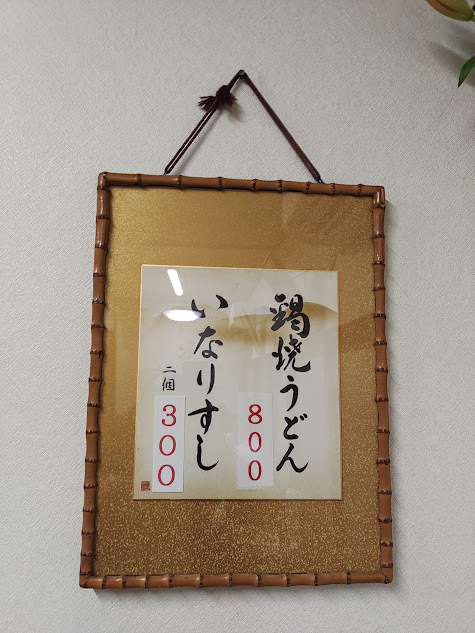 鍋焼うどん
800
いなりすし
二個
300